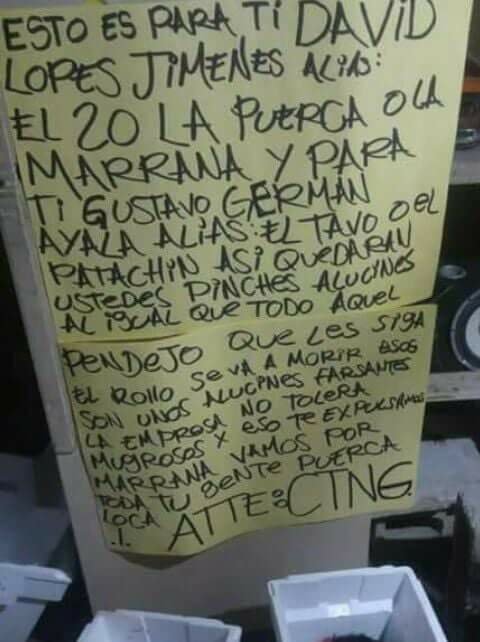 ESTO ES PARA TI DAVID
LOPES JIMENES ALIAS:
EL 20 LA PUERCA O LA
MARRANA Y PARA
TI GUSTAVO GERMAN
AYALA ALIAS: EL TAVO O EL
PATACHIN ASI QUEDARAN
USTEDES PINCHES ALUCINES
AL IGUAL QUE TODO AQUEL
PENDEJO QUE LES SIGA
EL ROLLO SE VA A MORIR ESOS
SON UNOS ALUCINES FARSANTES
LA EMPRESA NO TOLERA
MUGROSOS X ESO TE EXPULSAMOS
MARRANA VAMOS POR
TODA TU GENTE PUERCA
LOCA .l. ATTE: CTNG